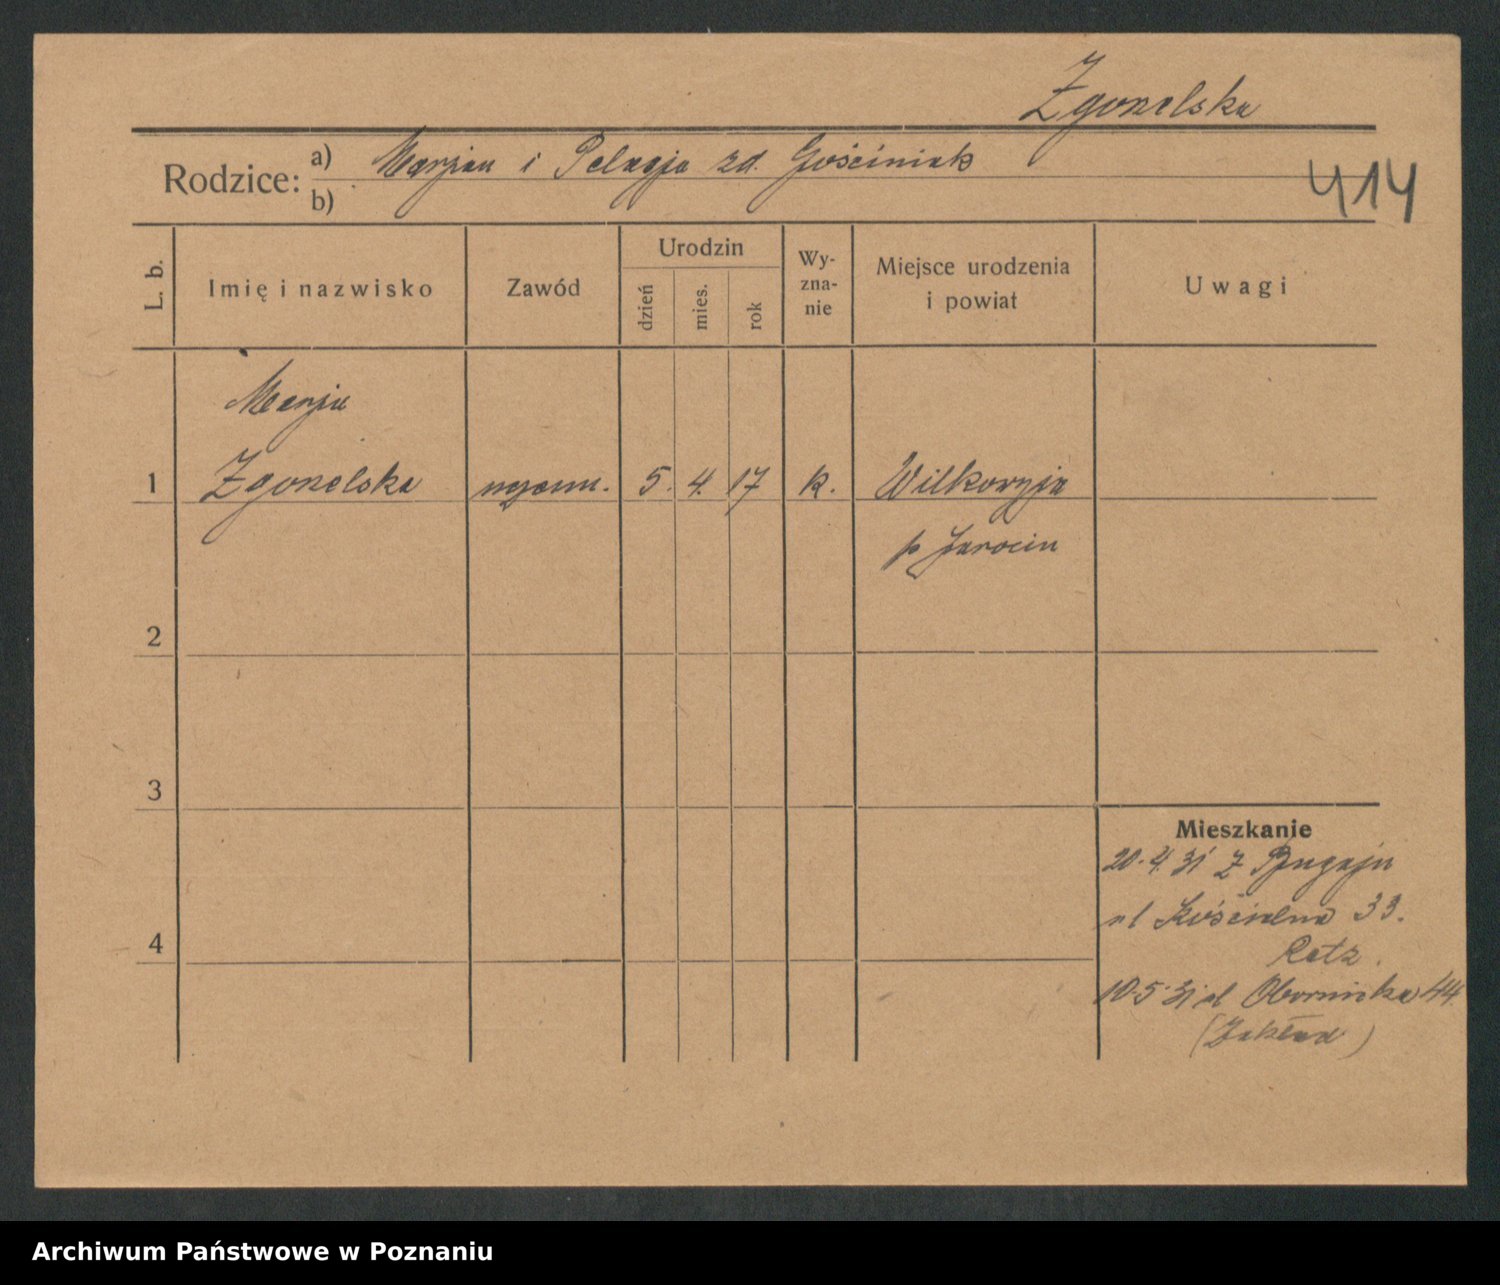 Zgonelska
Rodzice:
a) Marjan i Pelagja zd. Gościniak
b)
414
L. b.
Imię i nazwisko
Zawód
Urodzin
dzień
mies.
rok
Wy-
zna-
nie
Miejsce urodzenia
i powiat
Uwagi
Marja
1 Zgonelska uczenn. 5. 4. 17 k. Wilkowyja
p Jarocin
2
3
Mieszkanie
20.4.31 z
ul Kościelna 33.
4
Ratz.
10.5.31 ul Obornicka 44
(Zakład)
Archiwum Państwowe w Poznaniu